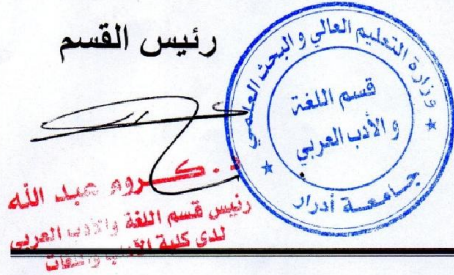 رئيس القسم
وزارة التعليم العالي والبحث العلمي
قسم اللغة
و الأدب العربي
جامعة أدرار
د. كروم عبد الله
رئيس قسم اللغة والأدب العربي
لدى كلية الآداب واللغات